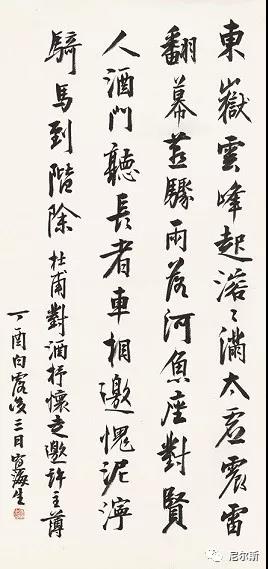 東嶽雲峰起溶々滿太虛震雷
翻幕燕驟雨落河魚座對賢
人酒門聽長者車相邀愧泥濘
騎馬到階除 杜甫對酒抒懷走邀許主薄
丁酉白露後三日
尼尔斯